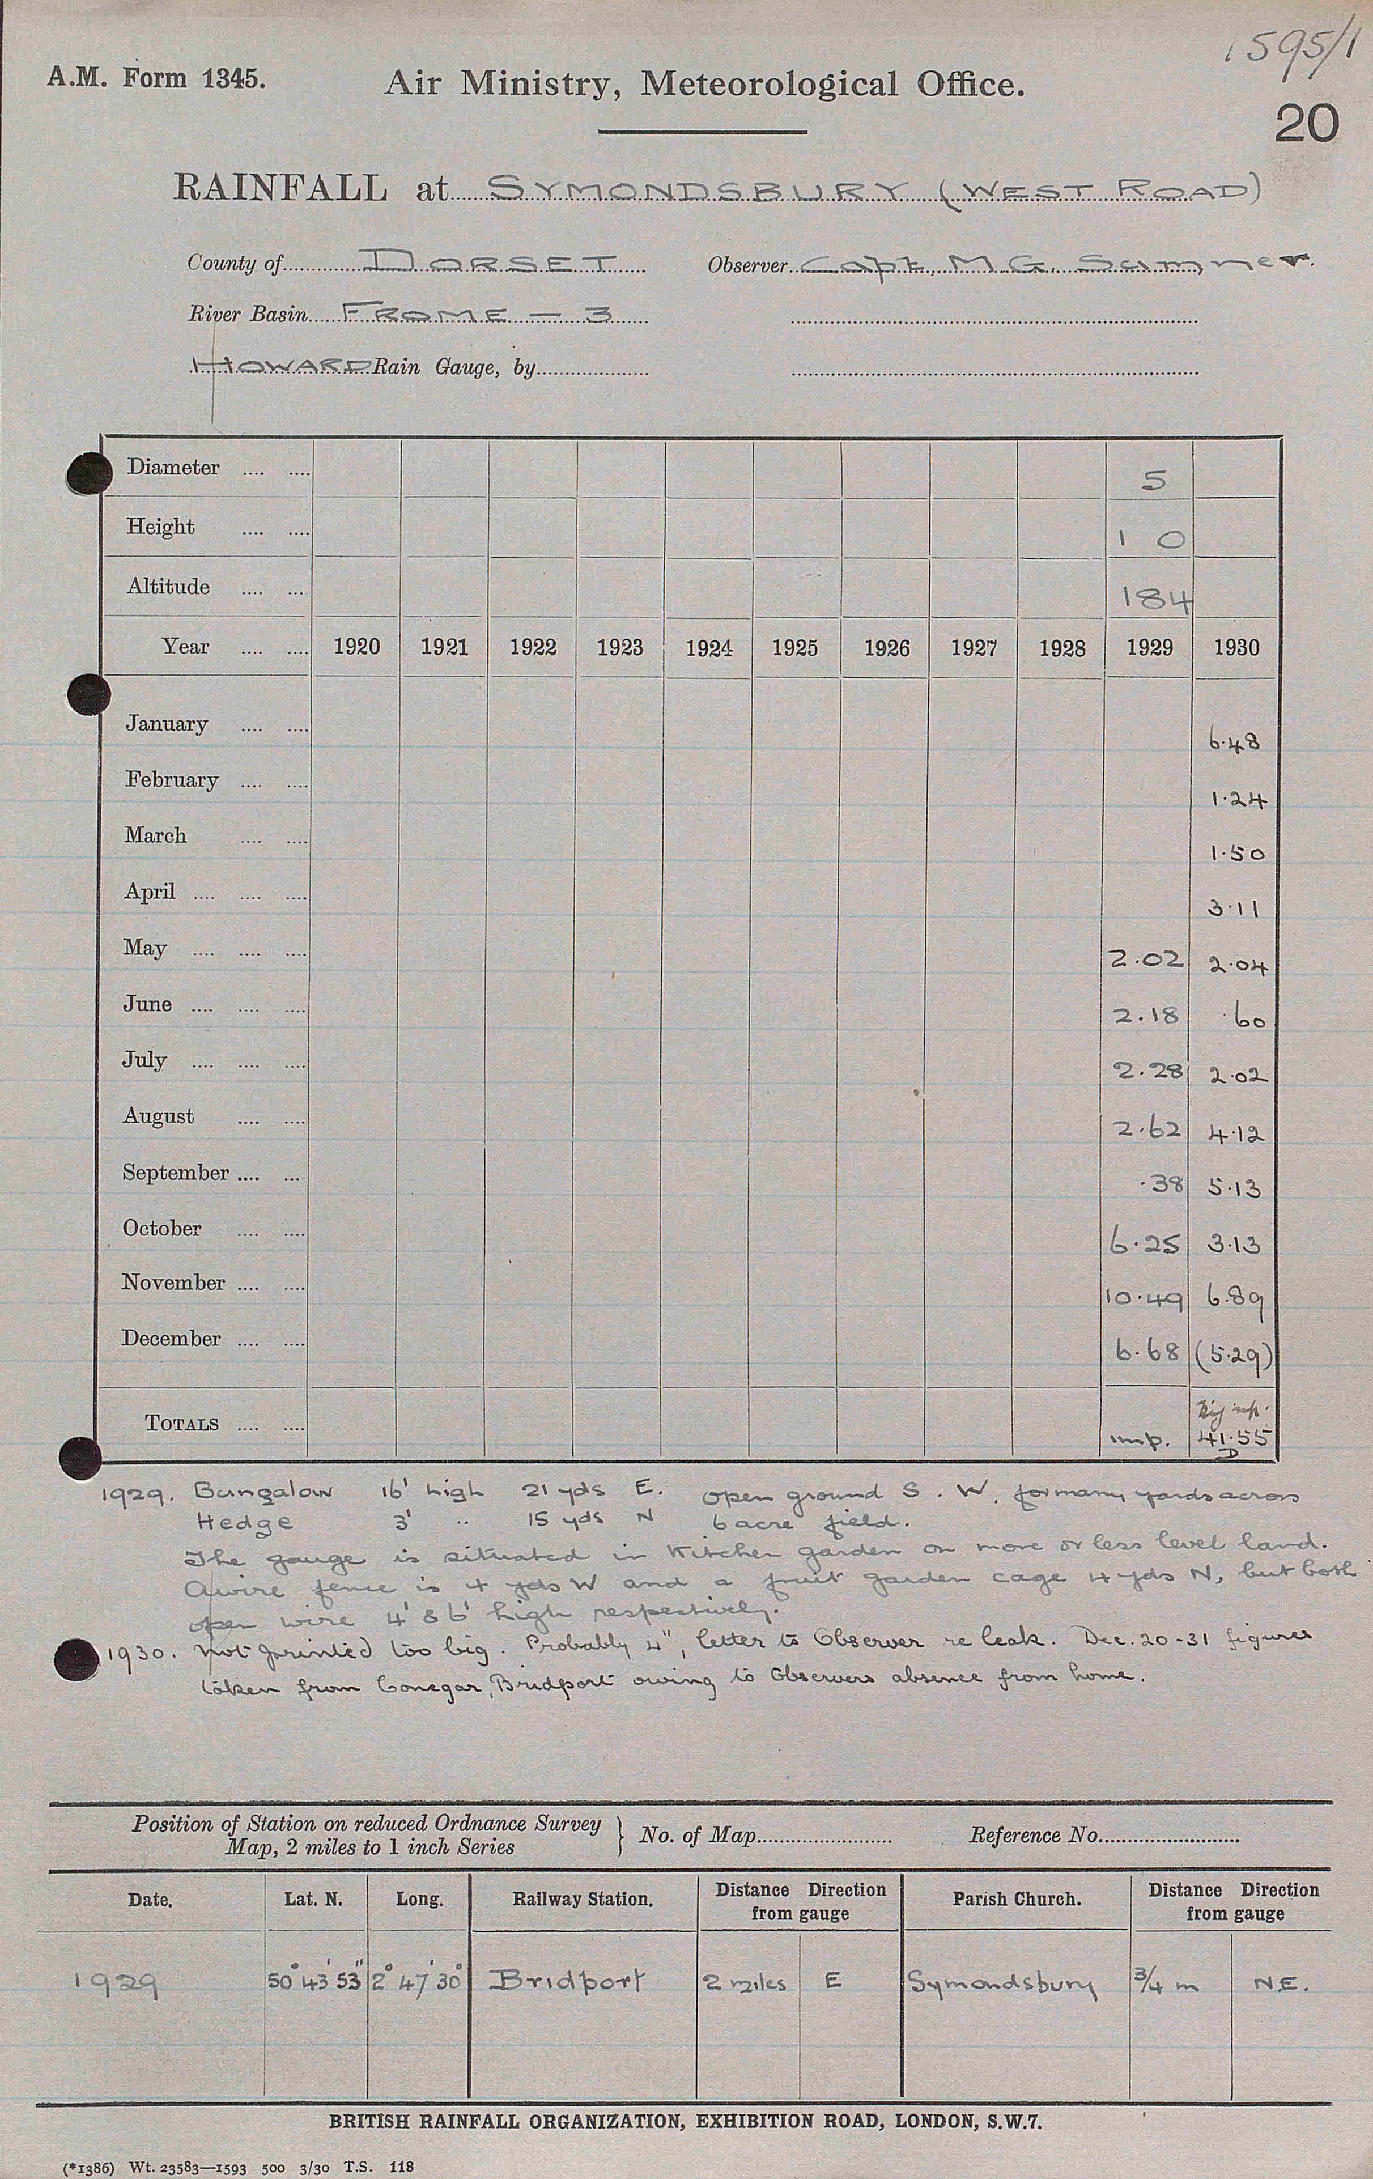 1595/1
A.M. Form 1345. Air Ministry, Meteorological Office.
20
RAINFALL at SYMONDSBURY (WEST ROAD)
County of DORSET Observer Capt. M.G. Summer.
River Basin FROME — 3
HOWARD Rain Gauge, by
Diameter 5
Height 1 0
Altitude 184
Year 1920 1921 1922 1923 1924 1925 1926 1927 1928 1929 1930
January 6.48
February 1.24
March 1.50
April 3.11
May 2.02 2.04
June 2.18 .60
July 2.28 2.02
August 2.62 4.12
September .38 5.13
October 6.25 3.13
November 10.49 6.89
December 6.68 (5.29)
TOTALS imp. 41.55
D
1929. Bungalow 16' high 21 yds E. open ground S. W. for many yards across
Hedge 3' " 15 yds N 6 acre field.
The gauge is situated in kitchen garden on more or less level land.
A wire fence is 4 yds W and a fruit garden cage 14 yds N, but both
open wire 4' & 6' high respectively.
1930. Not printed too big. Probably 4", letter to Observer re leak. Dec. 20-31 figures
taken from Conegar, Bridport owing to Observers absence from home.
Position of Station on reduced Ordnance Survey
Map, 2 miles to 1 inch Series } No. of Map Reference No.
Date. Lat. N. Long. Railway Station. Distance Direction from gauge Parish Church. Distance Direction from gauge
1929 50° 43' 53" 2° 47' 30" Bridport 2 miles E Symondsbury 3/4 m N.E.
BRITISH RAINFALL ORGANIZATION, EXHIBITION ROAD, LONDON, S.W.7.
(*1386) Wt. 23583—1593 500 3/30 T.S. 118